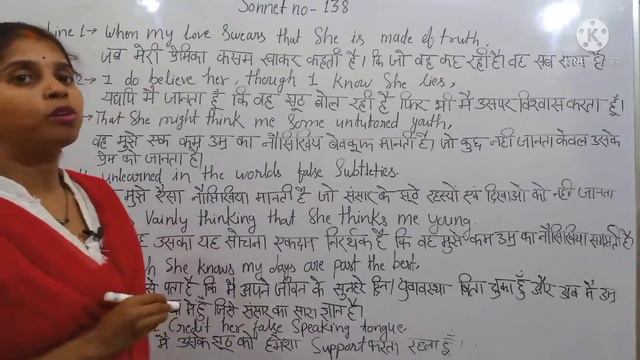 Sonnet no- 138
Line 1 -> When my Love Swears that She is made of truth,
जब मेरी प्रेमिका कसम खाकर कहती है। कि जो वह कह रही है। वह सब सत्य है।
2-> I do believe her, though I know She lies,
यद्यपि मैं जानता हूँ कि वह झूठ बोल रही है फिर भी मैं उसपर विश्वास करता हूँ।
That She might think me Some untutored youth,
वह मुझे एक कम उम्र का नौसिखिय बेवकूफ मानती है। जो कुछ नहीं जानता केवल उसके
प्रेम को जानता है।
unlearned in the worlds false Subtleties.
मुझे ऐसा नौसिखिया मानती है जो संसार के झूठे रहस्यों एवं दिखाओ को नहीं जानता
Vainly thinking that She thinks me young.
उसका यह सोचना एकदम निरर्थक है कि वह मुझे कम उम्र का नौसिखिया समझती है।
She knows my days are past the best,
पता है कि मैं अपने जीवन के सुनहरे दिन/युवावस्था बिता चुका हूँ और अब मैं उम्र
में हूँ जिसे संसार का सारा ज्ञान है।
Credit her false Speaking tongue
मैं उसके झूठ को हमेशा Support करता रहता हूँ।